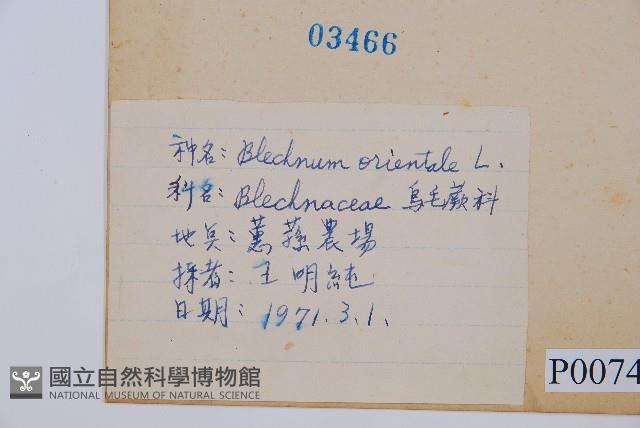 03466
种名: Blechnum orientale L.
科名: Blechnaceae 烏毛蕨科
地兵: 蕙蓀農場
採者: 王明純
日期: 1971.3.1.
P0074
國立自然科學博物館
NATIONAL MUSEUM OF NATURAL SCIENCE